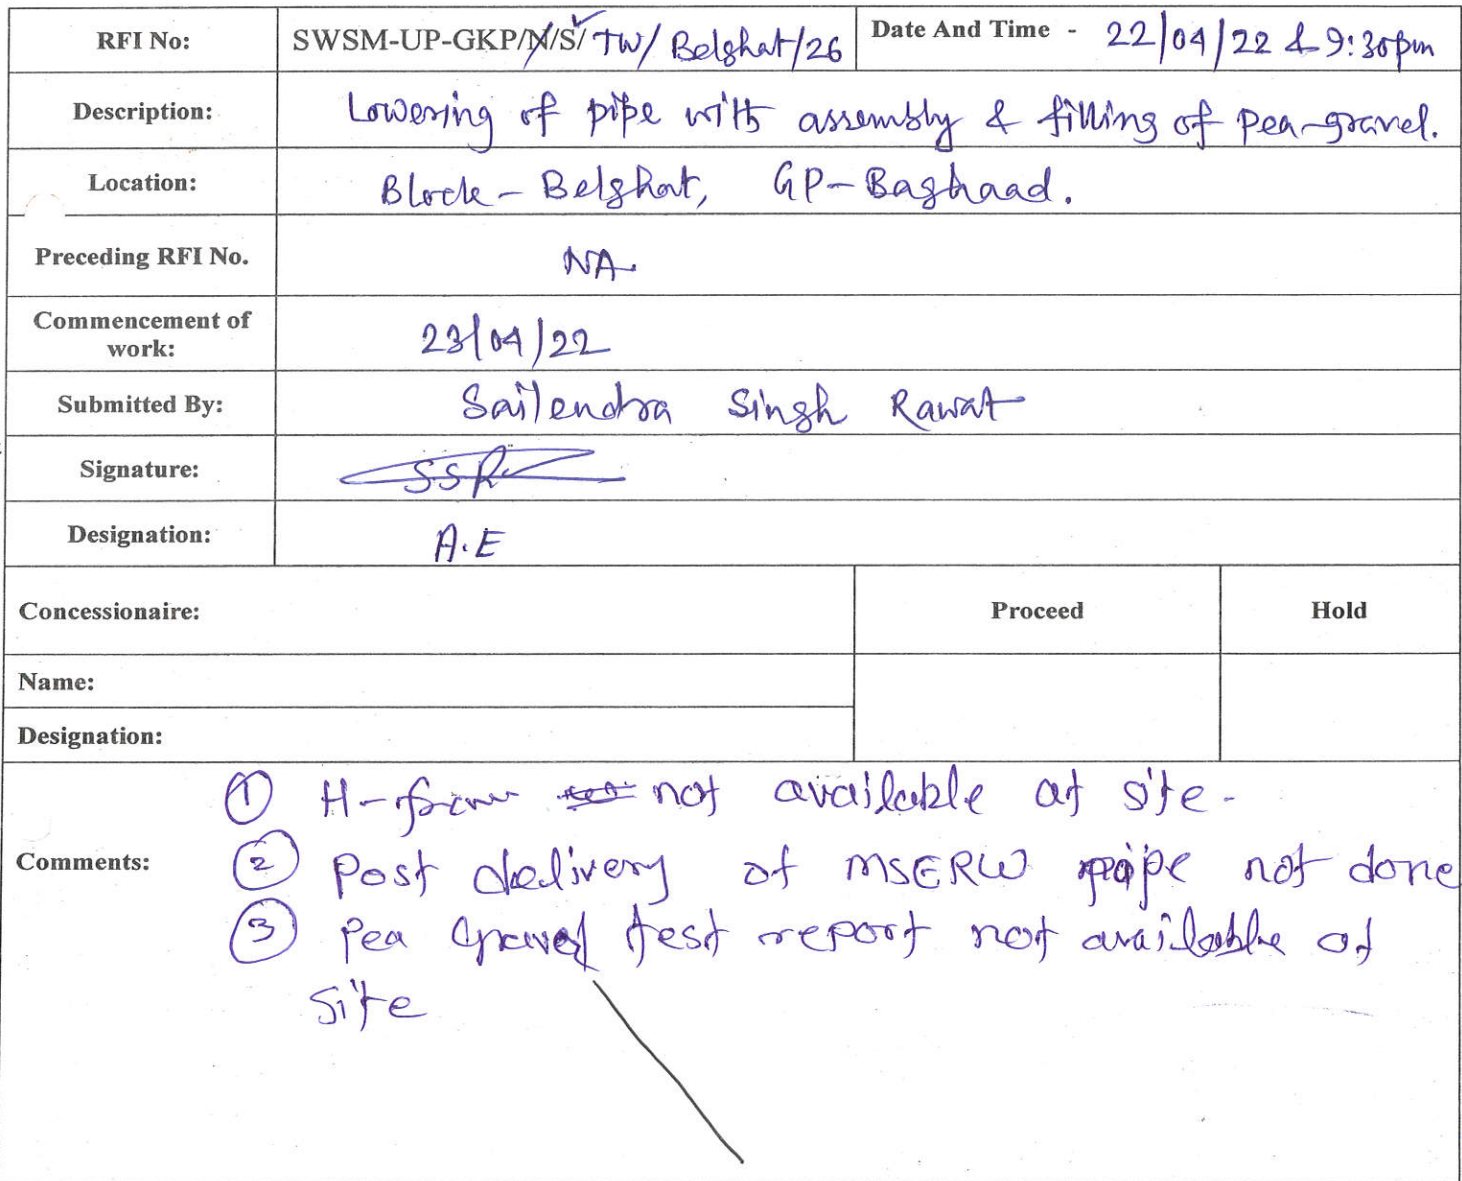 RFI No: SWSM-UP-GKP/N/S/ TW/ Belghat/26 Date And Time - 22/04/22 & 9:30pm
Description: Lowering of pipe with assembly & filling of pea-gravel.
Location: Block - Belghat, GP-Baghaad.
Preceding RFI No. NA
Commencement of
work: 23/04/22
Submitted By: Sailendra Singh Rawat
Signature: SSR
Designation: A.E
Concessionaire: Proceed Hold
Name:
Designation:
① H-frame not available at site-
Comments: ② Post delivery of MSERW pipe not done
③ Pea gravel test report not available at
site